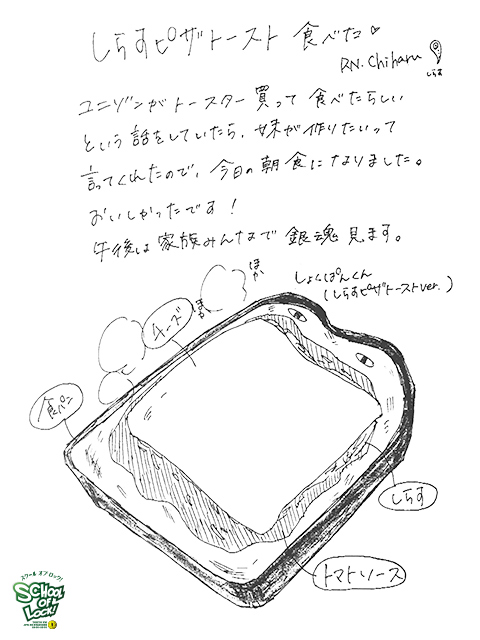 しらすピザトースト 食べた♡
RN. Chiharu
しらす
ユニゾンがトースター買って 食べたらしい
という話をしていたら、妹が作りたいって
言ってくれたので、今日の朝食になりました。
おいしかったです！
午後は家族みんなで 銀魂 見ます。
ほか
ほか
しょくぱんくん
(しらすピザトーストver.)
チーズ
食パン
しらす
トマトソース
スクール オブ ロック!
SCHOOL OF LOCK!